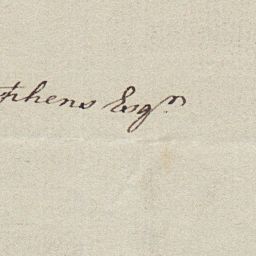 tphens Esqr.